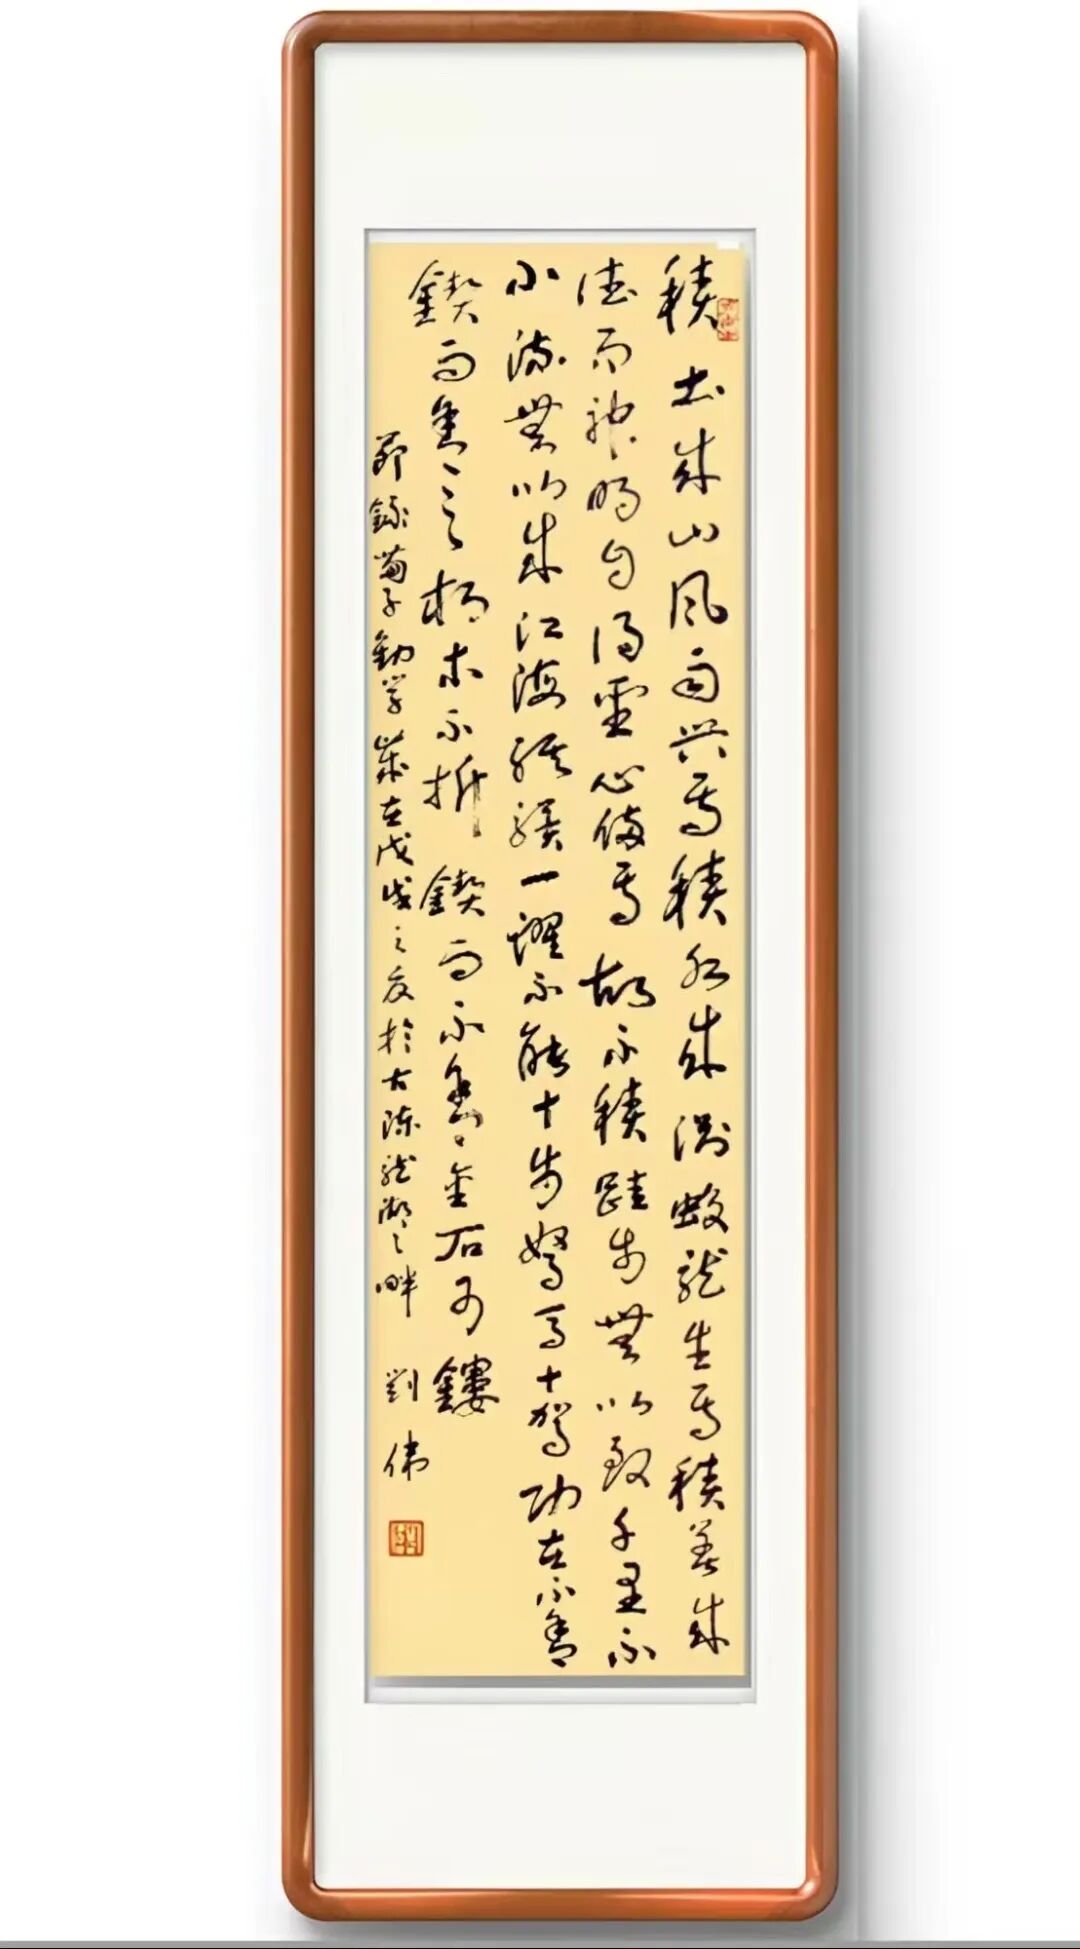 積土成山風雨興焉積水成淵蛟龍生焉積善成
德而神明自得聖心備焉故不積跬步無以致千里不
小流無以成江海騏驥一躍不能十步駑馬十駕功在不舍
鍥而舍之朽木不折鍥而不舍金石可鏤
節錄荀子勸學歲在戊戌之夏於古陳龍湖之畔 劉偉